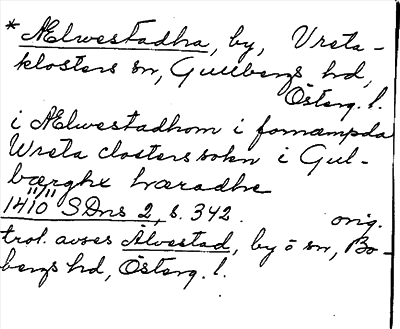 * Ælwestadha, by, Vreta-
klosters sn, Gullbergs hd,
Österg. l.
i Ælwestadhom i fornæmpda
Wreta closters sokn i Gul-
bærghx hæradhe
14 11/11 10 SDns 2, s. 342. orig.
trol. avses Älvestad, by o sn, Bo-
bergs hd, Österg. l.